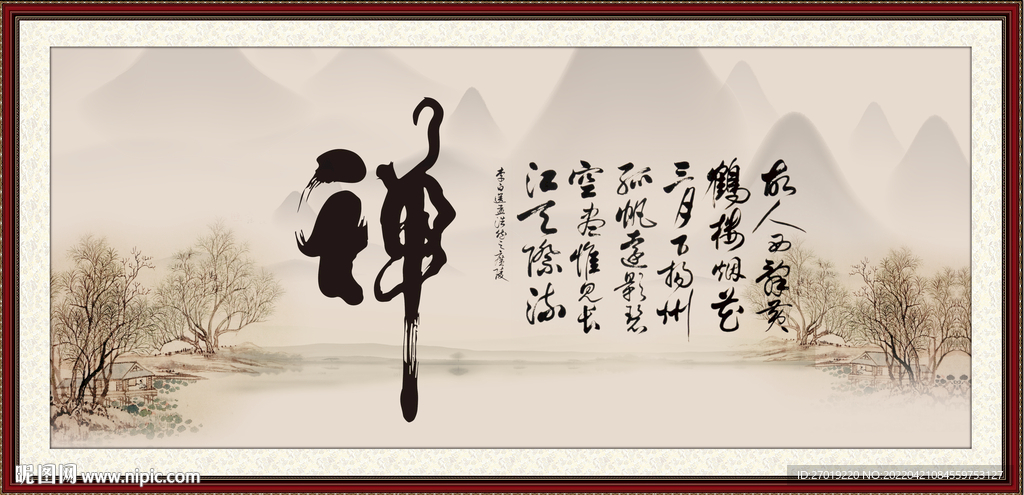 故人西辞黄
鹤楼烟花
三月下扬州
孤帆远影碧
空尽惟见长
江天际流
李白送孟浩然之广陵
禅
昵图网 www.nipic.com
ID:27019220 NO:20220421084559753127